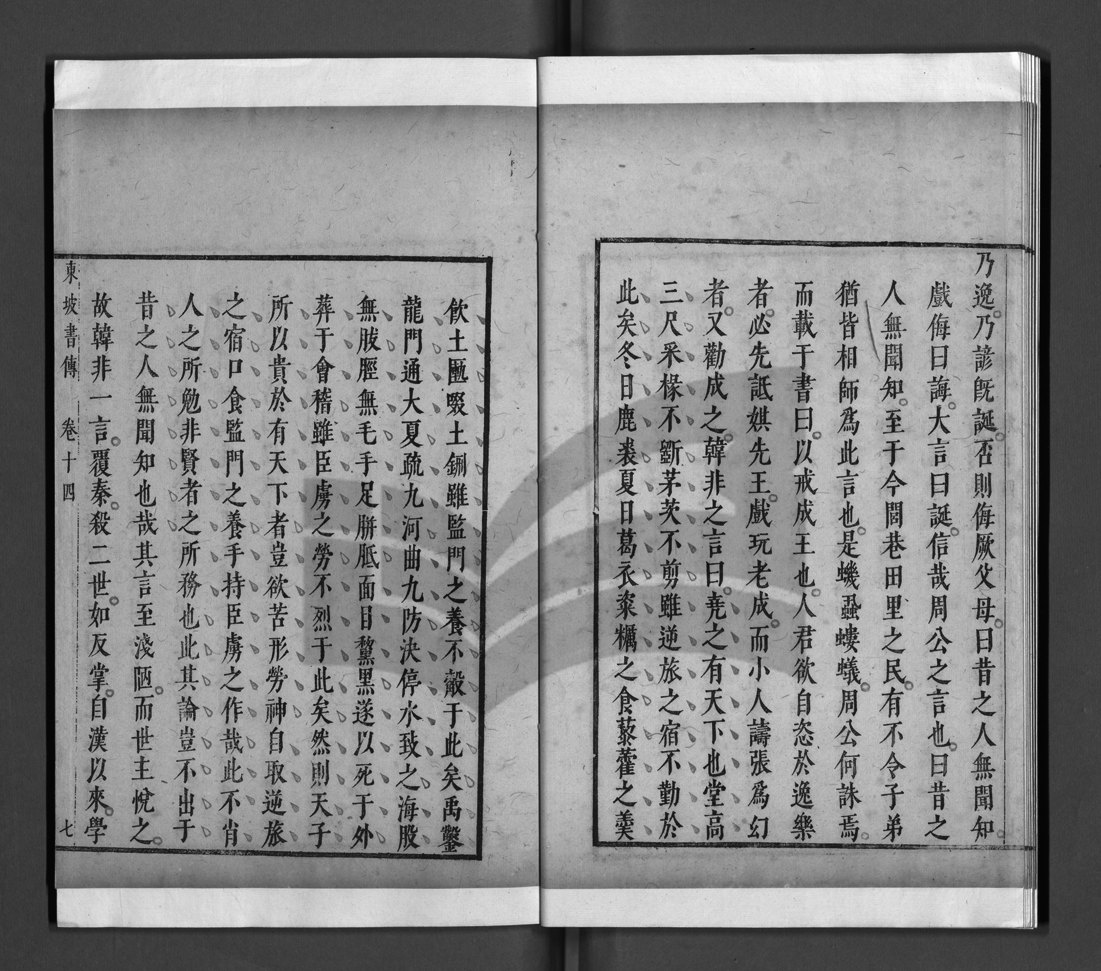 乃逸乃諺旣誕否則侮厥父母曰昔之人無聞知
戲侮曰誨大言曰誕信哉周公之言也曰昔之
人無聞知至于今閭巷田里之民有不令子弟
猶皆相師爲此言也是蟣蝨螻蟻周公何誅焉
而載于書曰以戒成王也人君欲自恣於逸樂
者必先詆娸先王戲玩老成而小人譸張爲幻
者又勸成之韓非之言曰堯之有天下也堂高
三尺采椽不斲茅茨不剪雖逆旅之宿不勤於
此矣冬日鹿裘夏日葛衣粢糲之食藜藿之羹
飲土匭啜土鉶雖監門之養不觳于此矣禹鑿
龍門通大夏疏九河曲九防決停水致之海股
無胈脛無毛手足胼胝面目黧黑遂以死于外
葬于會稽雖臣虜之勞不烈于此矣然則天子
所以貴於有天下者豈欲苦形勞神自取逆旅
之宿口食監門之養手持臣虜之作哉此不肖
人之所勉非賢者之所務也此其論豈不出于
昔之人無聞知也哉其言至淺陋而世主悅之
故韓非一言覆秦殺二世如反掌自漢以來學
東坡書傳 卷十四 七